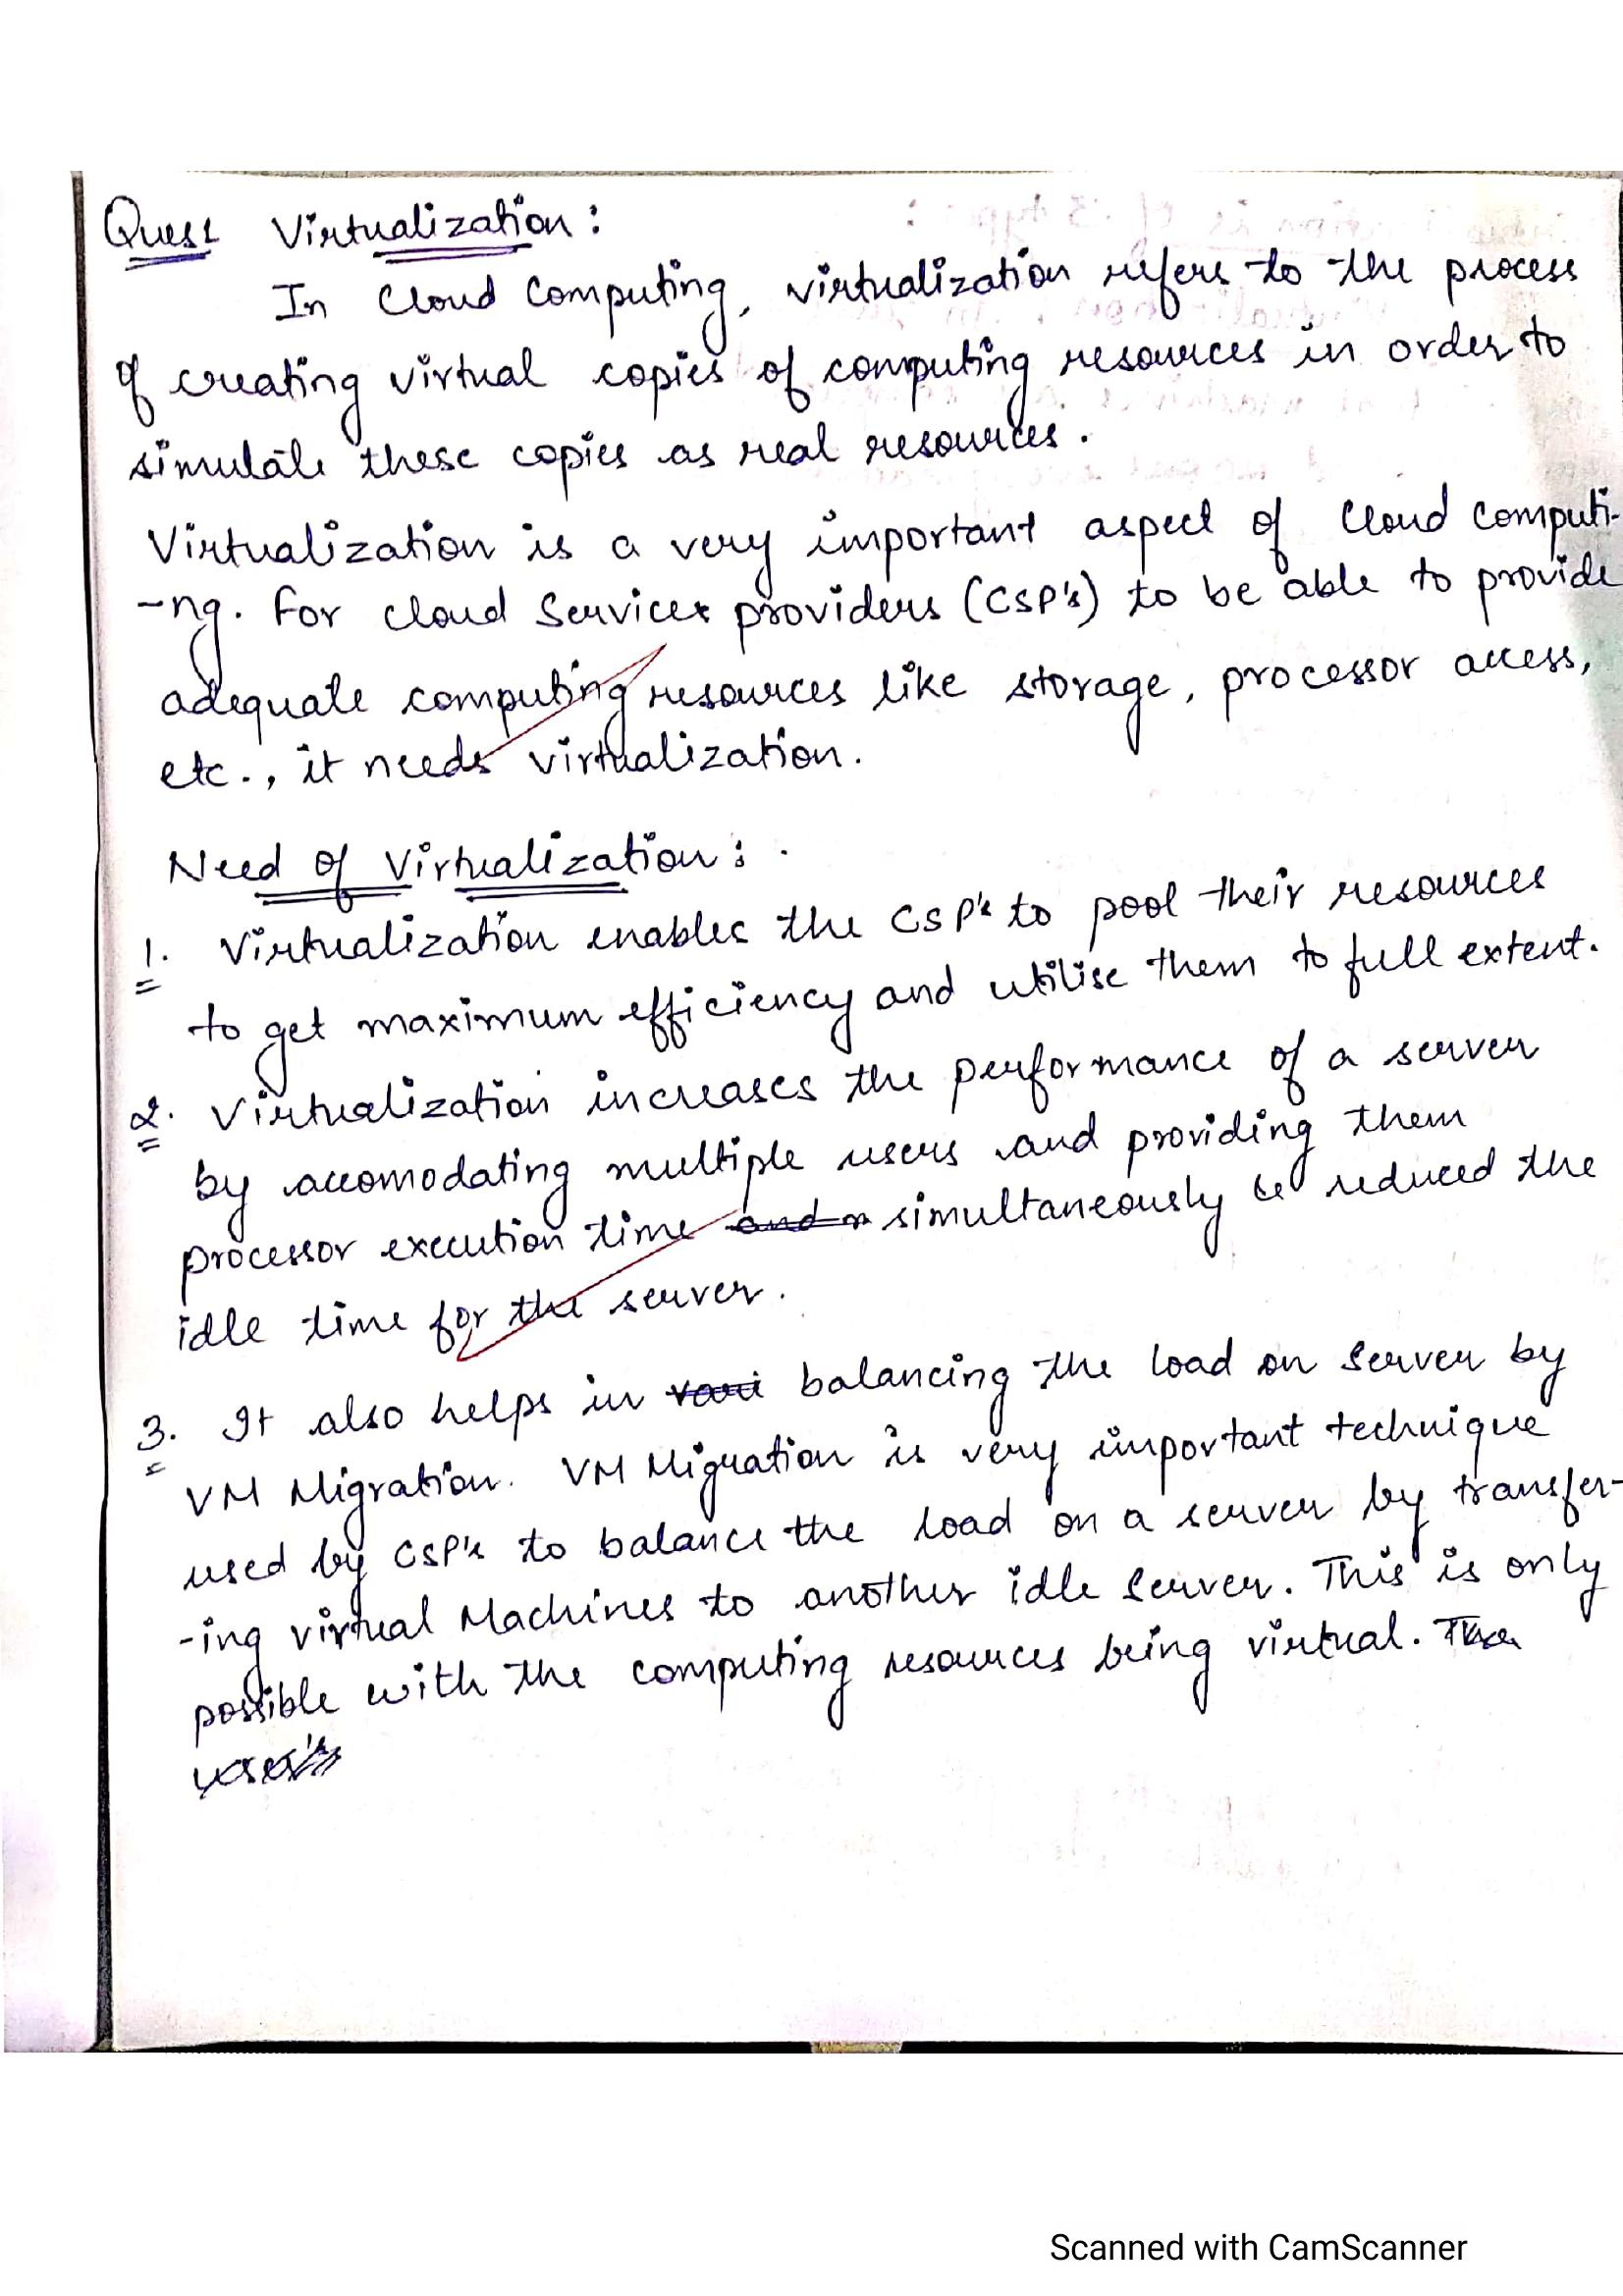 Ques1 Virtualization :
In Cloud Computing, virtualization refers to the process
of creating virtual copies of computing resources in order to
simulate these copies as real resources.
Virtualization is a very important aspect of Cloud Computi-
-ng. For Cloud Services providers (CSP's) to be able to provide
adequate computing resources like storage, processor access,
etc., it needs virtualization.
Need of Virtualization :
1. Virtualization enables the CSP's to pool their resources
to get maximum efficiency and utilise them to full extent.
2. Virtualization increases the performance of a server
by accomodating multiple users and providing them
processor execution time and simultaneously reduced the
idle time for the server.
3. It also helps in balancing the load on Server by
VM Migration. VM Migration is very important technique
used by CSP's to balance the load on a server by transfer-
-ing virtual Machines to another idle Server. This is only
possible with the computing resources being virtual.
Scanned with CamScanner